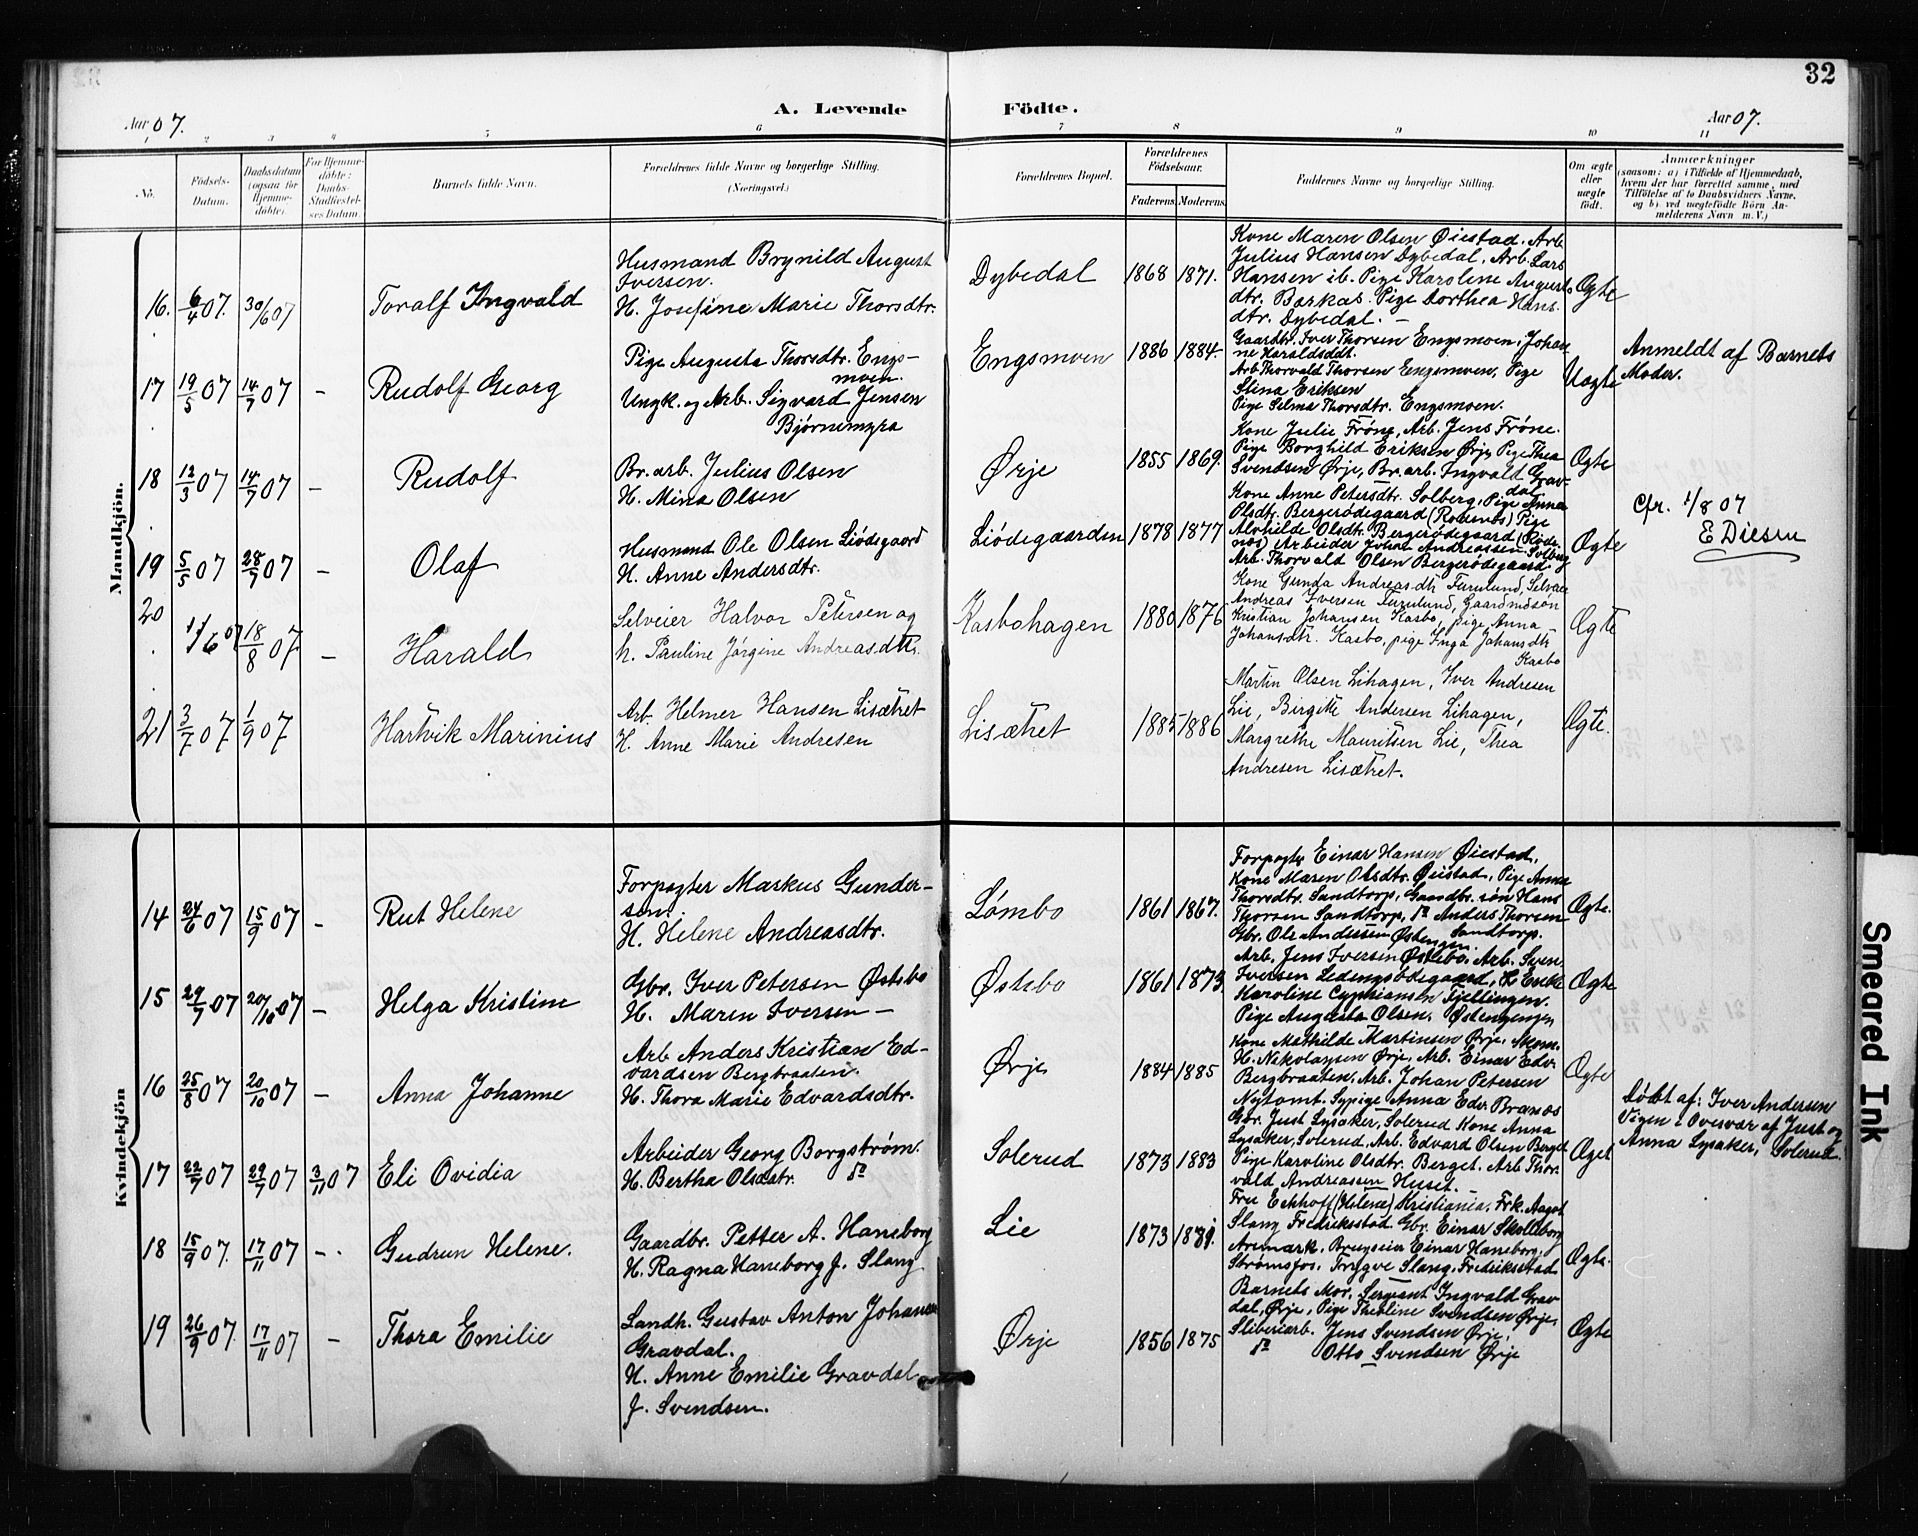 32
A. Levende Födte.
Aar 07.
Aar 07.
1 2 3 4 5 6 7 8 9 10 11
No.
Födsels-Datum.
Daabsdatum (ogsaa for Hjemme-döbte).
For Hjemme-döbte: Daabs-Stadfæstel-ses Datum.
Barnets fulde Navn.
Forældrenes fulde Navne og borgerlige Stilling. (Næringsvei.)
Forældrenes Bopæl.
Forældrenes Födselsaar.
Faderens. Moderens.
Faddernes Navne og borgerlige Stilling.
Om ægte eller uægte födt.
Anmærkninger
(saasom: a) i Tilfælde af Hjemmedaab,
hvem der har forrettet samme, med
Tilföielse af to Daabsvidners Navne,
og b) ved uægtefödte Börn An-
melderens Navn m. V.)
Mandkjön.
16. 6/4 07. 30/6 07 Toralf Ingvald
Husmand Brynild August
Iversen.
H. Josefine Marie Thorsdtr.
Dybedal 1868 1871.
Kone Maren Olsen Øiestad. Arb.
Julius Hansen Dybedal, Arb. Lars
Hansen ib. Pige Karoline August-
dtr. Barkas. Pige Dorthea Hans
dtr. Dybedal. –
Ægte
17 19/5 07 14/7 07 – Rudolf Georg
Pige Augusta Thorsdtr. Engs-
moen.
Ungk. og Arb. Sigvard Jensen
Bjørnemyra
Engsmoen 1886 1884
Gaardbr. Iver Thorsen Engsmoen, Johan
ne Haraldsdtr.
Arb. Thorvald Thorsen Engsmoen, Pige
Stina Eriksen
Pige Selma Thorsdtr. Engsmoen.
Uægte
Anmeldt af Barnets
Moder.
18 12/3 07 14/7 07 – Rudolf
Br. arb. Julius Olsen
H. Mina Olsen
Ørje 1855 1869.
Kone Julie Frøne, Arb. Jens Frøne.
Pige Borghild Eriksen Ørje, Pige Thea
Svendsen Ørje, Br. arb. Ingvald Grav-
dal
Ægte
Cfr. 1/8 07
E Diesen
19 5/5 07 28/7 07 – Olaf
Husmand Ole Olsen Liødegaard
H. Anne Andersdtr.
Liødegaarden 1878 1877
Kone Anne Petersdtr. Solberg, Pige Anna
Olsdtr. Bergerødegaard (Rødenæs) Pige
Alvhilde Olsdtr. Bergerødegaard (Røde
næs) Arbeider Johan Andreassen Solberg
Arb. Thorvald Olsen Bergerødegaard
Ægte
20 11/6 07 18/8 07 – Harald
Selveier Halvor Petersen og
h. Pauline Jørgine Andreasdtr.
Kasbohagen 1880 1876
Kone Gunda Andreasdtr Furulund, Selveier
Andreas Iversen Furulund, Gaardmdsøn
Kristian Johansen Kasbo, pige Anna
Johansdtr. Kasbo, pige Inga Johansdtr
Kasbo
Ægte
21 3/7 07 1/9 07 Hartvik Marinius
Arb. Helmer Hansen Lisætret
H. Anne Marie Andresen
Lisætret 1885 1886
Martin Olsen Lihagen, Iver Andresen
Lie, Birgitte Andersen Lihagen,
Margrethe Mauritsen Lie, Thea
Andresen Lisætret.
Ægte.
Kvindekjön
14 24/6 07 15/9 07 – Rut Helene
Forpagter Markus Gunder-
sen.
H. Helene Andreasdtr.
Lømbo 1861 1867.
Forpagter Einar Hansen Øiestad,
Kone Maren Olsdtr. Øiestad, Pige Anna
Thorsdtr. Sandtorp, Gaardbr. søn Hans
Thorsen Sandtorp, do Anders Thorsen
Sandtorp.
Ægte.
15 29/7 07 20/10 07 – Helga Kristine
Gbr. Iver Petersen Østebo
H. Maren Iversen –
Østebo 1861 1873.
Gbr. Ole Andersen Østengen.
Arb. Jens Iversen Østebo. Arb. Sven
Iversen Ledengsødegaard, H. Erikke
Karoline Cyphiansen Fjellingen.
Pige Augusta Olsen, Østengengen
Ægte
16 25/8 07 20/10 07 – Anna Johanne
Arb. Anders Kristian Ed-
vardsen Bergbraaten.
H. Thora Marie Edvardsdtr.
Ørje 1884 1885
Kone Mathilde Martinsen Ørje, Skom.
H. Nikolaysen Ørje, Arb. Einar Edv.
Bergbraaten, Arb. Johan Petersen
Nytomt. Sypige Anna Edv. Brænæs
Ægte
17 22/7 07 29/7 07 3/11 07 Eli Ovidia
Arbeider Georg Borgstrøm.
H. Bertha Olsdatr. do
Solerud 1873 1883
Gbr. Just Lysaker, Solerud Kone Anna
Lysaker, Solerud, Arb. Edvard Olsen Berget
Pige Karoline Olsdtr. Berget. Arb. Thor-
vald Andreassen Huset.
Ægte
Døbt af: Iver Andersen
Vigen i Overvær af Just og
Anna Lysaker, Solerud.
18 15/9 07. 17/11 07 – Gudrun Helene.
Gaardbr. Petter A. Haneborg
H. Ragna Haneborg f. Slang
Lie 1873 1881.
Fru Eckhoff (Helene) Kristiania, Frk. Aagot
Slang Fredriksstad. Gbr. Einar Skolleborg
Aremark. Brugseier Einar Haneborg,
Strømsfos, Trygve Slang, Fredriksstad
Ægte.
19 26/9 07. 17/11 07 – Thora Emilie
Landh. Gustav Anton Johansen
Gravdal.
H. Anne Emilie Gravdal
f. Svendsen.
Ørje 1856 1875
Barnets Mor, Sergeant Ingvald Grav
dal, Ørje, Pige Theoline Svendsen Ørje,
Sliberiarb. Jens Svendsen Ørje,
do Otto Svendsen Ørje
Ægte
Smeared Ink